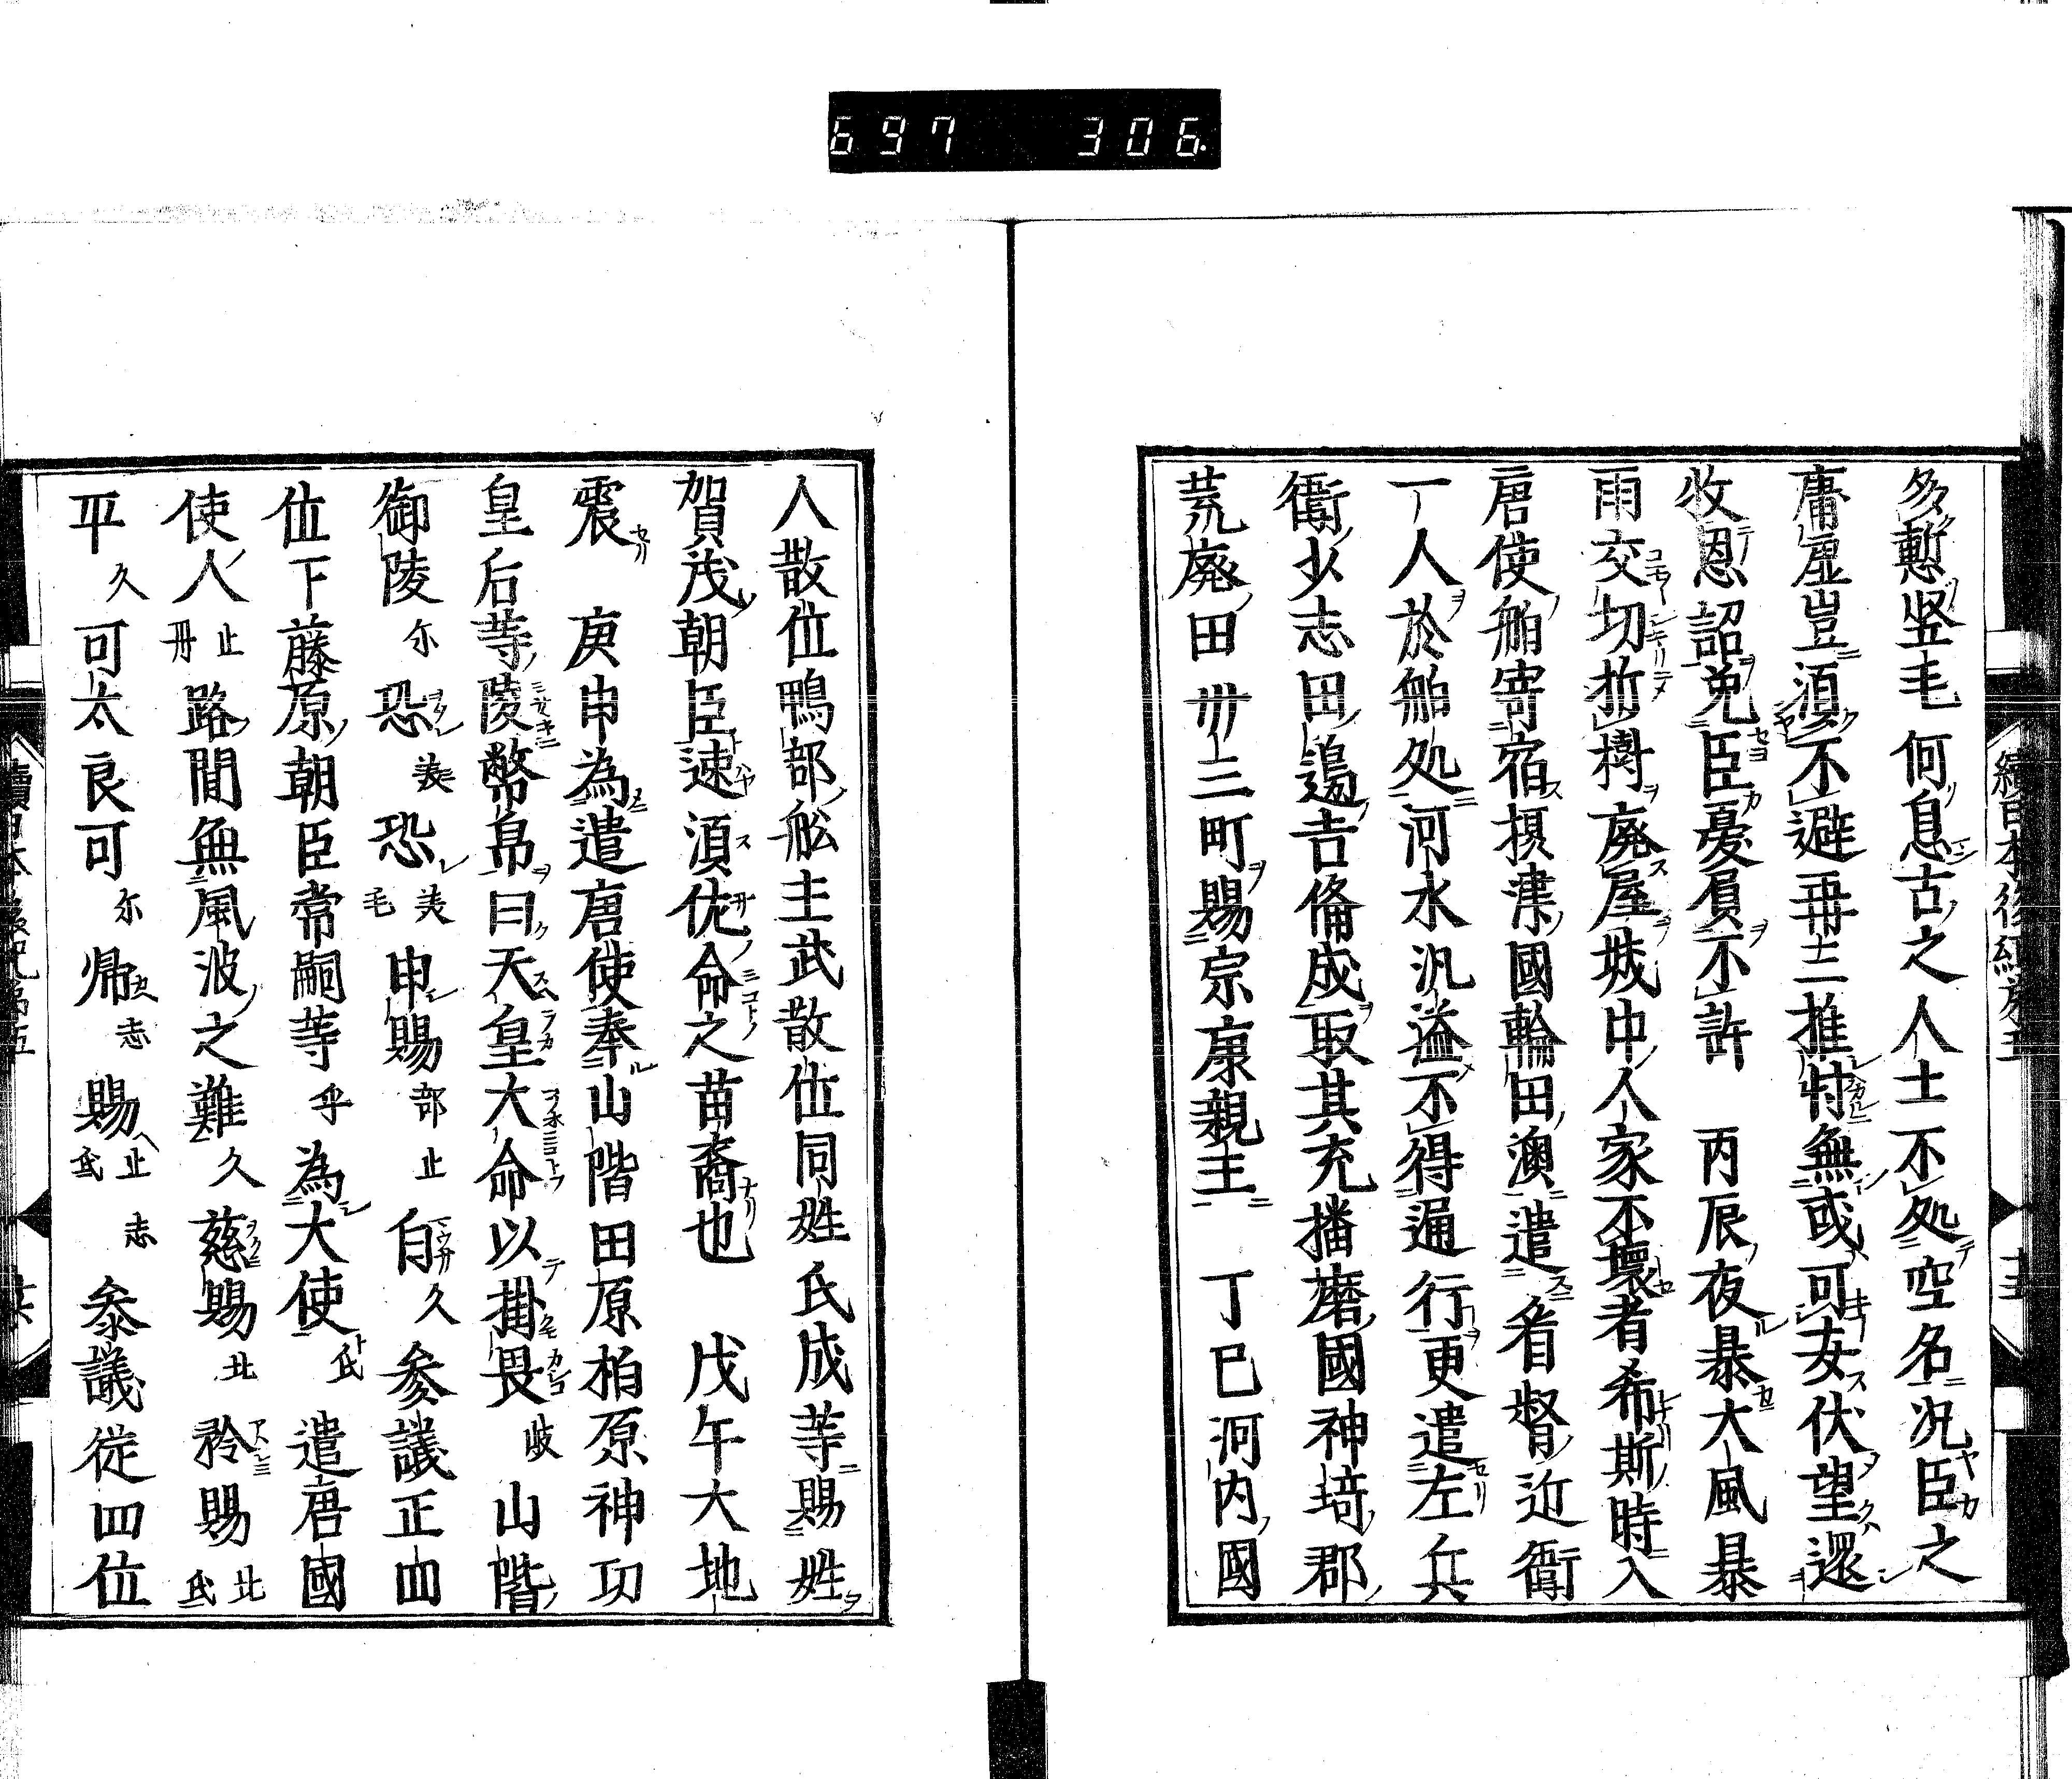 697 306
多慙竪毛何息古之人士不処空名況臣之
庸虚豈須不避再三推㤙無或可女伏望還
收恩詔免臣憂負不許 丙辰夜暴大風暴
雨交切折樹廃屋城中人家不壊者希斯時入
唐使舶寄宿摂津國輪田澳遣㸔督近衛
一人於舶処河水汎溢不得通行更遣左兵
衛少志田邉吉備成取其充播磨國神埼郡
荒廃田卌三町賜宗康親王 丁巳河内國
人散位鴨部舩主武散位同姓氏成等賜姓
賀茂朝臣速須佐命之苗裔也 戊午大地
震 庚申為遣唐使奉山階田原柏原神功
皇后等陵幣帛曰天皇大命以掛畏岐山階
御陵尓恐美恐美毛申賜部止自久参議正四
位下藤原朝臣常嗣等乎為大使氐遣唐國
使人止毋路間無風波之難久慈賜比矜賜比氐
平久可太良可尓帰志賜止氐志参議從四位
續日本後紀巻五
十五
續日本後紀巻五
十六